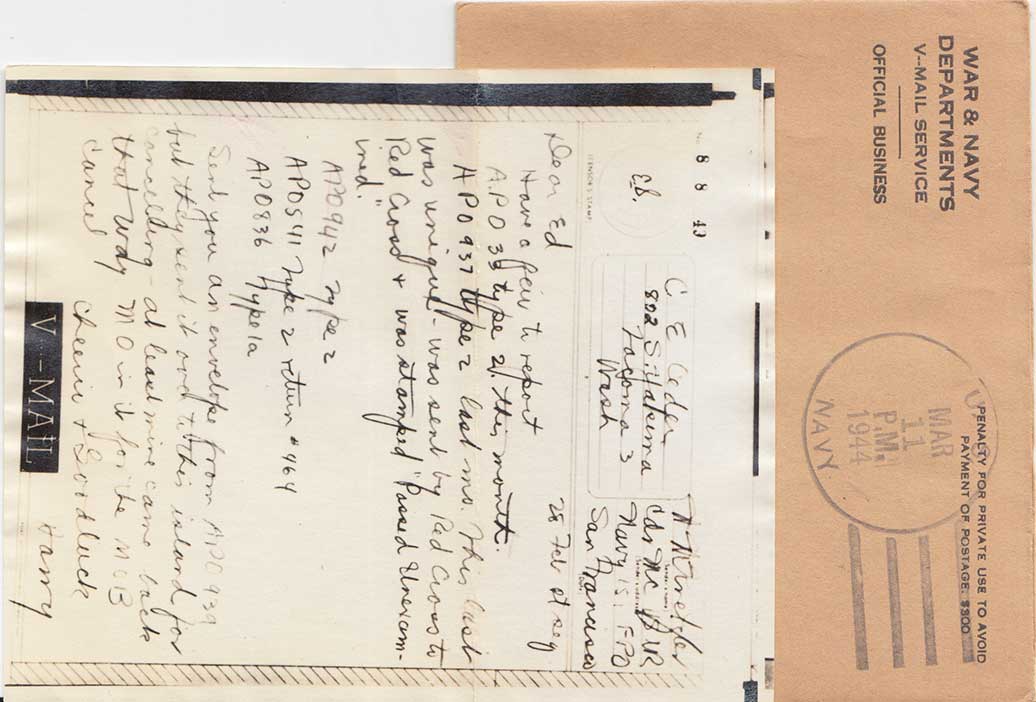 WAR & NAVY
DEPARTMENTS
V-MAIL SERVICE
OFFICIAL BUSINESS
PENALTY FOR PRIVATE USE TO AVOID
PAYMENT OF POSTAGE. $300
MAR
11
P.M.
1944
NAVY
No.
8 8 49
CENSOR'S STAMP
C.B.
C E Cedfer
802 S. Yakima
Tacoma 3
Wash
Cdr MC USNR
Navy 151 FPO
San Francisco
28 Feb at sea
Dear Ed
Have a few to report
A.P.O 33 type 2, this month.
APO 937 type 2 last mo. This last
was unique - was sent by Red Cross to
Red Cross & was stamped "Passed Unexam-
ined."
APO942 type 2
APO541 type 2 return #464
APO836 type 1a
Sent you an envelope from APO 939
but they sent it ood to this island for
cancelling - at least mine came back
that way MO in it for the MOB
cancel
Cheerio & Goodluck
Harry
V-MAIL